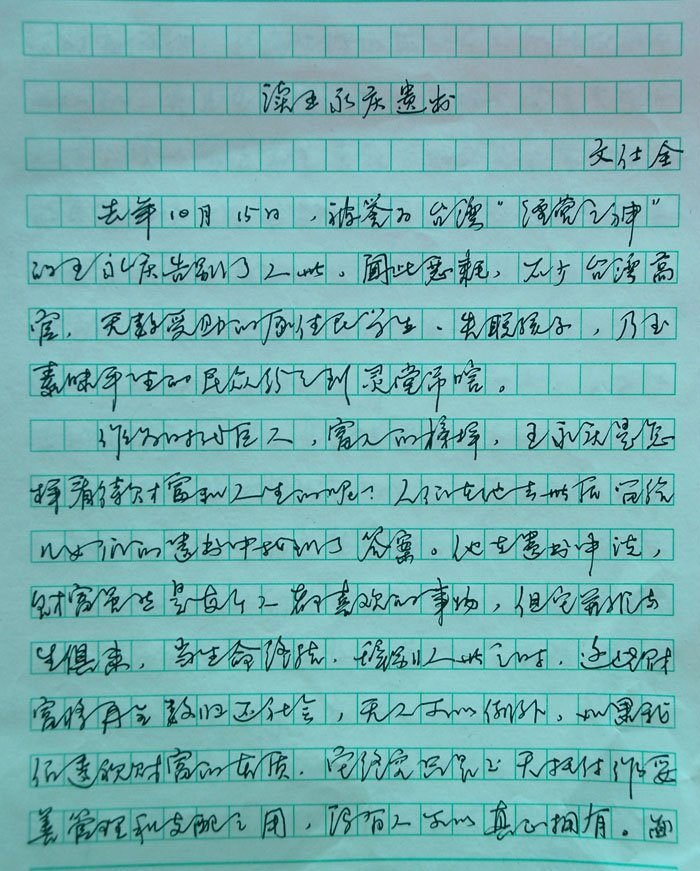 读王永庆遗书
文仕全
去年10月15日，被誉为台湾“经营之神”
的王永庆告别了人世。闻此恶耗，不少台湾高
官，无数受助的原住民学生、失聪孩子，乃至
素昧平生的民众纷纷到灵堂吊唁。
作为时代巨人，富人的榜样，王永庆是怎
样看待财富和人生的呢？人们在他去世后写给
儿女们的遗书中找到了答案。他在遗书中说，
财富虽然是每个人都喜欢的事物，但它并非与
生俱来，当生命终结、辞别人世之时，这些财
富将再全数归还社会，无人可以例外。如果我
们透视财富的本质，它终究只是上天托付作妥
善管理和支配之用，没有人可以真正拥有。面